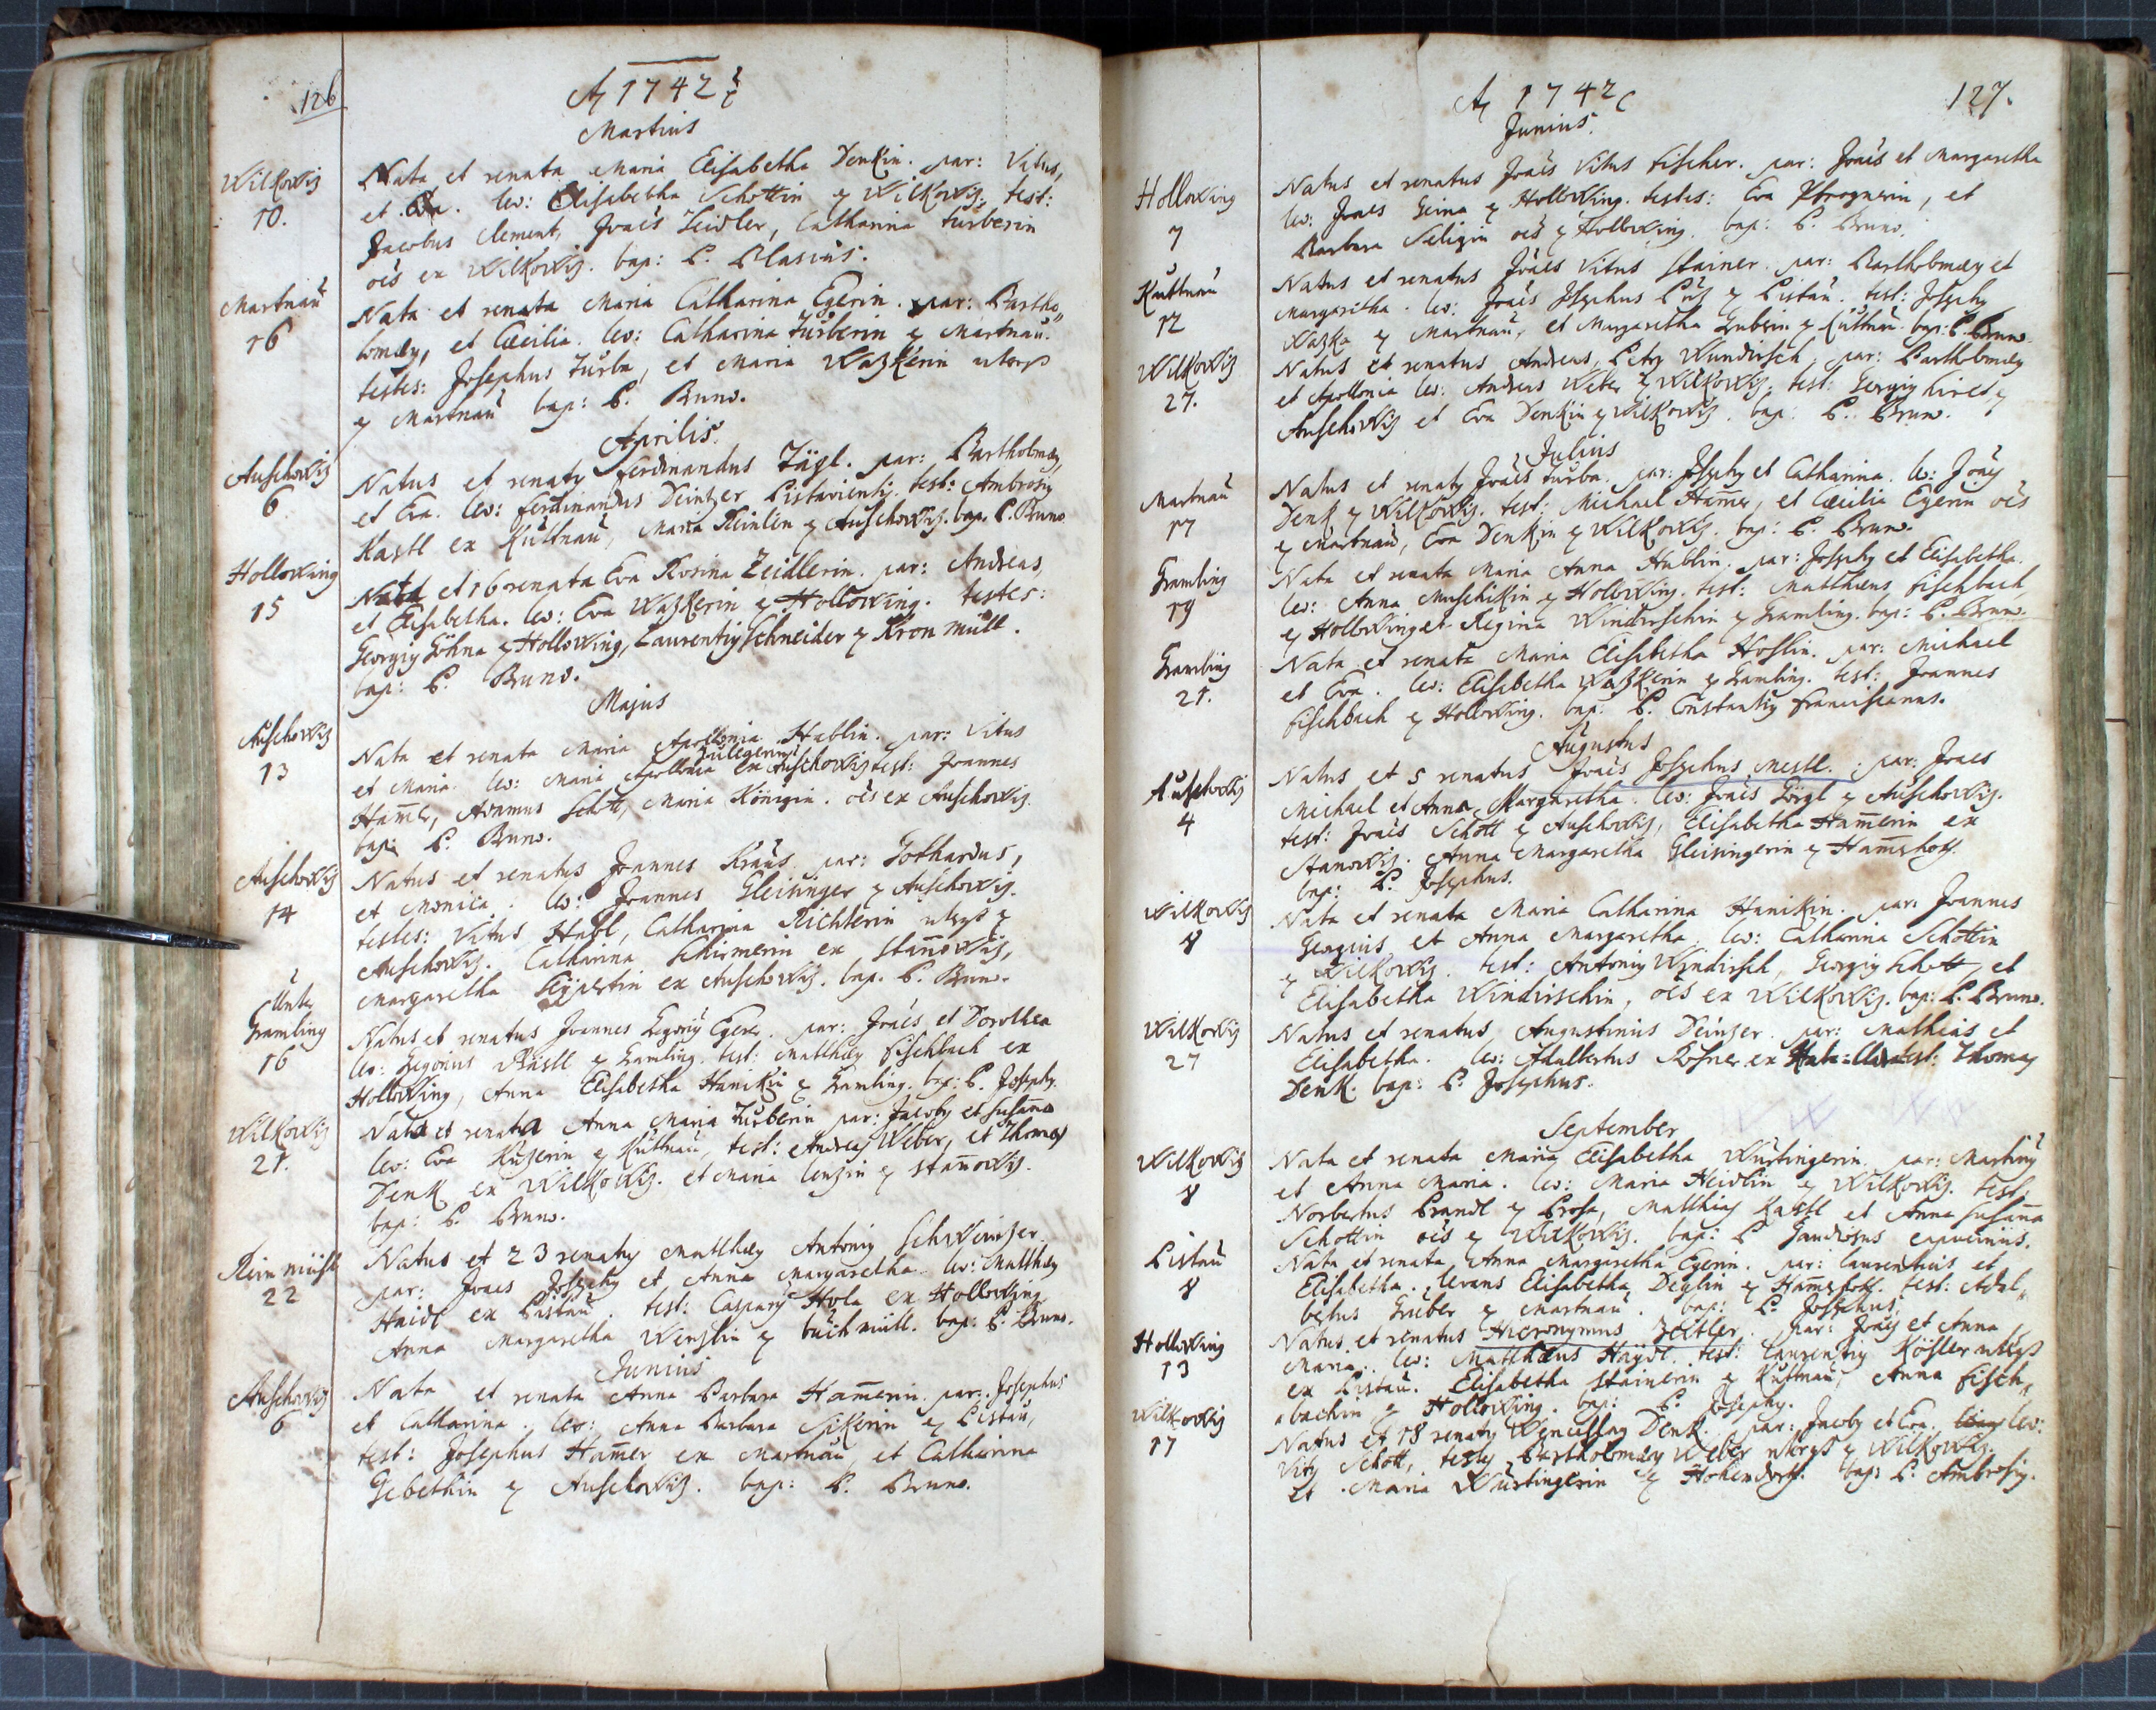 126
A 1742
Martius
Wilkowiz
10.
Nata et renata Maria Elisabetha Denkin. par: Vitus,
et Eva. lev: Elisabetha Schottin ex Wilkowiz, test:
Jacobus Clement, Joaës Zeidler, Catharina Turberin
oës ex Wilkowiz. bap: P. Blasius.
Martnau
16
Nata et renata Maria Catharina Egerin. par: Bartho„
lomæy, et Cæcilia. lev: Catharina Turberin ex Martnau.
testes: Josephus Turba, et Maria Wazkerin utorqs
ex Martnau bap: P. Bruno.
Aprilis
Auschowiz
6
Natus et renaty Ferdinandus Jägl. par: Bartholmæy,
et Eva. lev: Ferdinandus Deintzer Pistaviensis. test: Ambrosy
Kastl ex Kuttnau, Maria Reinlin ex Auschowiz. bap. P. Bruno
Hollowing
15
Nata et 16 renata Eva Rosina Zeidlerin. par: Andreas,
et Elisabetha. lev: Eva Wazkerin ex Hollowing. testes:
Georgiy Göhna ex Hollowing, Laurentiy Schneider ex Kron mühl.
bap: P. Bruno.
Majus
Auschowiz
13
Nata et renata Maria Apollonia Hablin. par: Vitus
et Maria. lev: Maria Apollonia Zulegerin ex Auschowiz test: Joannes
Hamer, Adamus Schott, Maria Königin. oës ex Auschowiz.
bap: P. Bruno.
Auschowiz
14
Natus et renatus Joannes Kraus. par: Gothardus,
et Monica. lev: Joannes Gleisinger ex Auschowiz.
testes: Vitus Habl, Catharina Richterin utrqs ex
Auschowiz. Catharina Schirmerin ex Stanowiz,
Margaretha Seypertin ex Auschowiz. bap. P. Bruno.
Unter
Gramling
16
Natus et renatus Joannes Gregoriy Eger. par: Joaës et Dorothea
lev: Gregorius Rästl ex Gramling. test: Matthæy Fischbach ex
Hollowing, Anna Elisabetha Hanikin ex Gramling. bap: P. Josephy.
Wilkowiz
21.
Nata et renata Anna Maria Turberin par: Jacoby et Susana
lev: Eva Kuzerin ex Kuttnau, test: Andreas Weber, et Thomas
Denk ex Wilkowiz. et Maria Lenzin ex Stanowiz.
bap: P. Bruno.
Rein mühl
22
Natus et 23 renaty Matthæy Antoniy Schweinzer.
par: Joaes Josephy et Anna Margaretha. lev: Matthæy
Haidl ex Pistau. test: Caspary Hola ex Hollowing
Anna Margaretha Wenzlin ex buchmühl. bap: P. Bruno.
Junius
Auschowiz
6
Nata et renata Anna Barbara Hamerin. par: Josephus
et Catharina. lev: Anna Barbara Sikerin ex Pistau,
test: Josephus Hamer ex Martnau, et Catharina
Gebethin ex Auschowiz. bap: P. Bruno.
A 1742
127.
Junius.
Hollowing
7
Natus et renatus Joaës Vitus Fischer. par: Joaës et Margaretha
lev: Joaes Geina ex Hollowing. testes: Eva Ptrognerin, et
Barbara Seligin oës ex Hollowing. bap: P. Bruno.
Kuttnau
12
Natus et renatus Joaes Vitus Stainer. par: Bartholomæy et
Margaritha. lev: Joaës Josephus Pitz ex Pistau. test: Josephy
Wazka ex Martnau, et Margaretha Grubrin ex Kuttnau. bap: P. Bruno.
Wilkowiz
27.
Natus et renatus Andreas, Petry Wundirsch. par: Bartholomæy
et Apollonia lev: Andreas Weber ex Wilkowiz. test: Georgiy Hired ex
Auschowiz et Eva Denkin ex Wilkowiz. bap: P. Bruno.
Julius
Martnau
17
Natus et renaty Joaës Turba. par: Josephy et Catharina. lev: Joaës
Denk ex Wilkowiz. test: Michael Hamer, et Cæcilia Egerin oës
ex Martnau, Eva Denkin ex Wilkowiz. bap: P. Bruno.
Gramling
19
Nata et renata Maria Anna Hublin. par: Josephy et Elisabetha.
lev: Anna Muschikin ex Hollowing. test: Matthæus Fischbach,
ex Hollowing et Regina Windirschin ex Gramling. bap: P. Bruno.
Gramling
21.
Nata et renata Maria Elisabetha Hoslin. par: Michael
et Eva. lev: Elisabetha Wazkerin ex Gramling. test: Joannes
Fischbach ex Hollowing. bap: P. Constantiy Franciscanus.
Augustus
Auschowiz
4
Natus et 5 renatus Joaës Josephus Mestl. par: Joaes
Michael et Anna Margaretha. lev: Joaës Görgl ex Auschowiz.
test: Joaës Schott ex Auschowiz, Elisabetha Hamerin ex
Stanowiz. Anna Margaretha Gleisingerin ex Hamerhoff.
bap: P. Josephus.
Wilkowiz
8
Nata et renata Maria Catharina Hanikin. par. Joannes
Georgius et Anna Margaretha. lev: Catharina Schottin
ex Wilkowiz. test: Antoniy Windirsch, Georgiy Schott, et
Elisabetha Windirschin, oës ex Wilkowiz. bap: P. Bruno.
Wilkowiz
27
Natus et renatus Augustinus Deinzer. par: Mathias et
Elisabetha. lev: Adalbertus Rosner ex test: Thomas
Denk. bap: P. Josephus.
September
Wilkowiz
8
Nata et renata Maria Elisabetha Würtingerin. par: Martiny
et Anna Maria. lev: Maria Heidlin ex Wilkowiz. test,
Norbertus Brandl ex Prosa, Matthias Kastl et Anna Susana
Schottin oës ex Wilkowiz. bap: P. Gaudiosus capucinus.
Pistau
8
Nata et renata Anna Margaretha Egerin. par: Laurentius et
Elisabetha. levans Elisabetha Deglin ex Hamerhoff. test: Adal„
bertus Gruber ex Martnau. bap: P. Josephus.
Hollowing
13
Natus et renatus Hieronymus Zeitler. par: Joaës et Anna
Maria. lev: Matthæus Haydl. test: Laurentiy Kösler utrqs
ex Pistau. Elisabetha Stainerin ex Kuttnau, Anna Fisch„
bachin ex Hollowing. bap: P. Josephy.
Wilkowiz
17
Natus et 18 renaty Wenceslay Denk. par: Jacoby et Eva. lev:
Vity Schott, testes Bartholomæy Weber utrqs ex Wilkowiz.
et Maria Würtingerin ex Hohendorf. bap: P. Ambrosiy.